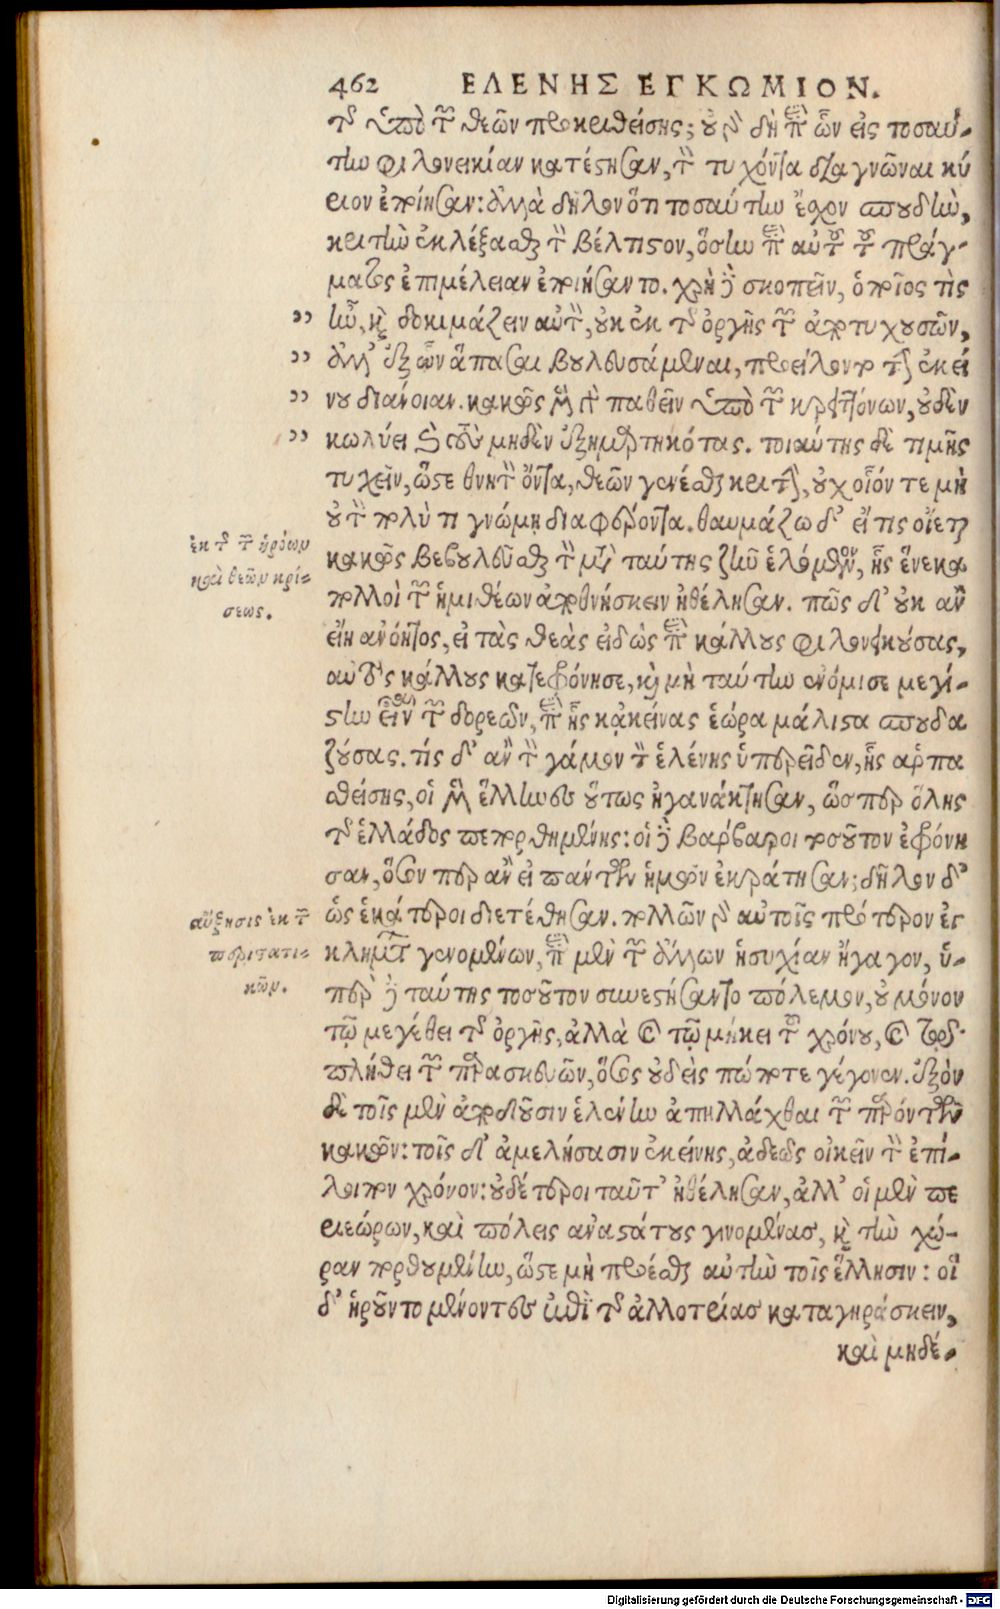 462 ΕΛΕΝΗΣ ΕΓΚΩΜΙΟΝ.
τῆς ὑπὸ τῶν θεῶν προκριθείσης; οὐ γὰρ δὴ περὶ ὧν εἰς τοσαύ-
την φιλονεικίαν κατέστησαν, τὸν τυχόντα διαγνῶναι κύ
ριον ἐποίησαν: ἀλλὰ δῆλον ὅτι τοσαύτην ἔσχον σπουδὴν,
κριτὴν ἐκλέξασθαι τὸν βέλτιστον, ὅσην περὶ αὐτοῦ τοῦ πράγ-
ματος ἐπιμέλειαν ἐποιήσαντο. χρὴ δὲ σκοπεῖν, ὁποῖος τὶς
ἦν, καὶ δοκιμάζειν αὐτὸν, οὐκ ἐκ τῆς ὀργῆς τῶν ἀποτυχουσῶν,
ἀλλ' ἐξ ὧν ἅπασαι βουλευσάμεναι, προείλοντο τὴν ἐκεί
νου διάνοιαν. κακῶς μὲν γὰρ παθεῖν ὑπὸ τῶν κρειττόνων, οὐδὲν
κωλύει καὶ τοὺς μηδὲν ἐξημαρτηκότας. τοιαύτης δὲ τιμῆς
τυχεῖν, ὥστε θνητὸν ὄντα, θεῶν γενέσθαι κριτὴν, οὐχ οἷόν τε μὴ
οὐ τὸν πολὺ τι γνώμῃ διαφέροντα. θαυμάζω δ' εἴ τις οἴεται
κακῶς βεβουλεῦσθαι τὸν μετὰ ταύτης ζῆν ἑλόμενον, ἧς ἕνεκα
πολλοὶ τῶν ἡμιθέων ἀποθνήσκειν ἠθέλησαν. πῶς δ' οὐκ ἂν
εἴη ἀνόητος, εἰ τὰς θεὰς εἰδὼς περὶ κάλλους φιλονεικούσας,
αὐτὸς κάλλους κατεφρόνησε, καὶ μὴ ταύτην ἐνόμισε μεγί-
στην εἶναι τῶν δορεῶν, περὶ ἧς κἀκείνας ἑώρα μάλιστα σπουδα
ζούσας. τίς δ' ἂν τὸν γάμον τὸν ἑλένης ὑπερεῖδεν, ἧς ἁρπα
σθείσης, οἱ μὲν ἕλληνες οὕτως ἠγανάκτησαν, ὥσπερ ὅλης
τῆς ἑλλάδος πεπορθημένης: οἱ δὲ βάρβαροι τοσοῦτον ἐφρόνη
σαν, ὅσον περ ἂν εἰ πάντων ἡμῶν ἐκράτησαν; δῆλον δ'
ὡς ἑκάτεροι διετέθησαν. πολλῶν γὰρ αὐτοῖς πρότερον ἐγ
κλημάτων γενομένων, περὶ μὲν τῶν ἄλλων ἡσυχίαν ἤγαγον, ὑ-
πὲρ δὲ ταύτης τοσοῦτον συνεστήσαντο πόλεμον, οὐ μόνον
τῷ μεγέθει τῆς ὀργῆς, ἀλλὰ καὶ τῷ μήκει τοῦ χρόνου, καὶ τῷ
πλήθει τῶν παρασκευῶν, ὅσος οὐδεὶς πώποτε γέγονεν. ἐξὸν
δὲ τοῖς μὲν ἀποδοῦσιν ἑλένην ἀπηλλάχθαι τῶν παρόντων
κακῶν: τοῖς δ' ἀμελήσασιν ἐκείνης, ἀδεῶς οἰκεῖν τὸν ἐπί-
λοιπον χρόνον: οὐδέτεροι ταῦτ' ἠθέλησαν, ἀλλ' οἱ μὲν πε
ριεώρων, καὶ πόλεις ἀναστάτους γινομένας, καὶ τὴν χώ-
ραν πορθουμένην, ὥστε μὴ προέσθαι αὐτὴν τοῖς ἕλλησιν: οἱ
δ' ᾑροῦντο μένοντες ἐπὶ τῆς ἀλλοτρίας καταγηράσκειν,
καὶ μηδέ-
ἐκ τῆς τῶν ἡρώων
καὶ θεῶν κρί-
σεως.
αὔξησις ἐκ τῶν
περιστατι-
κῶν.
Digitalisierung gefördert durch die Deutsche Forschungsgemeinschaft - DFG